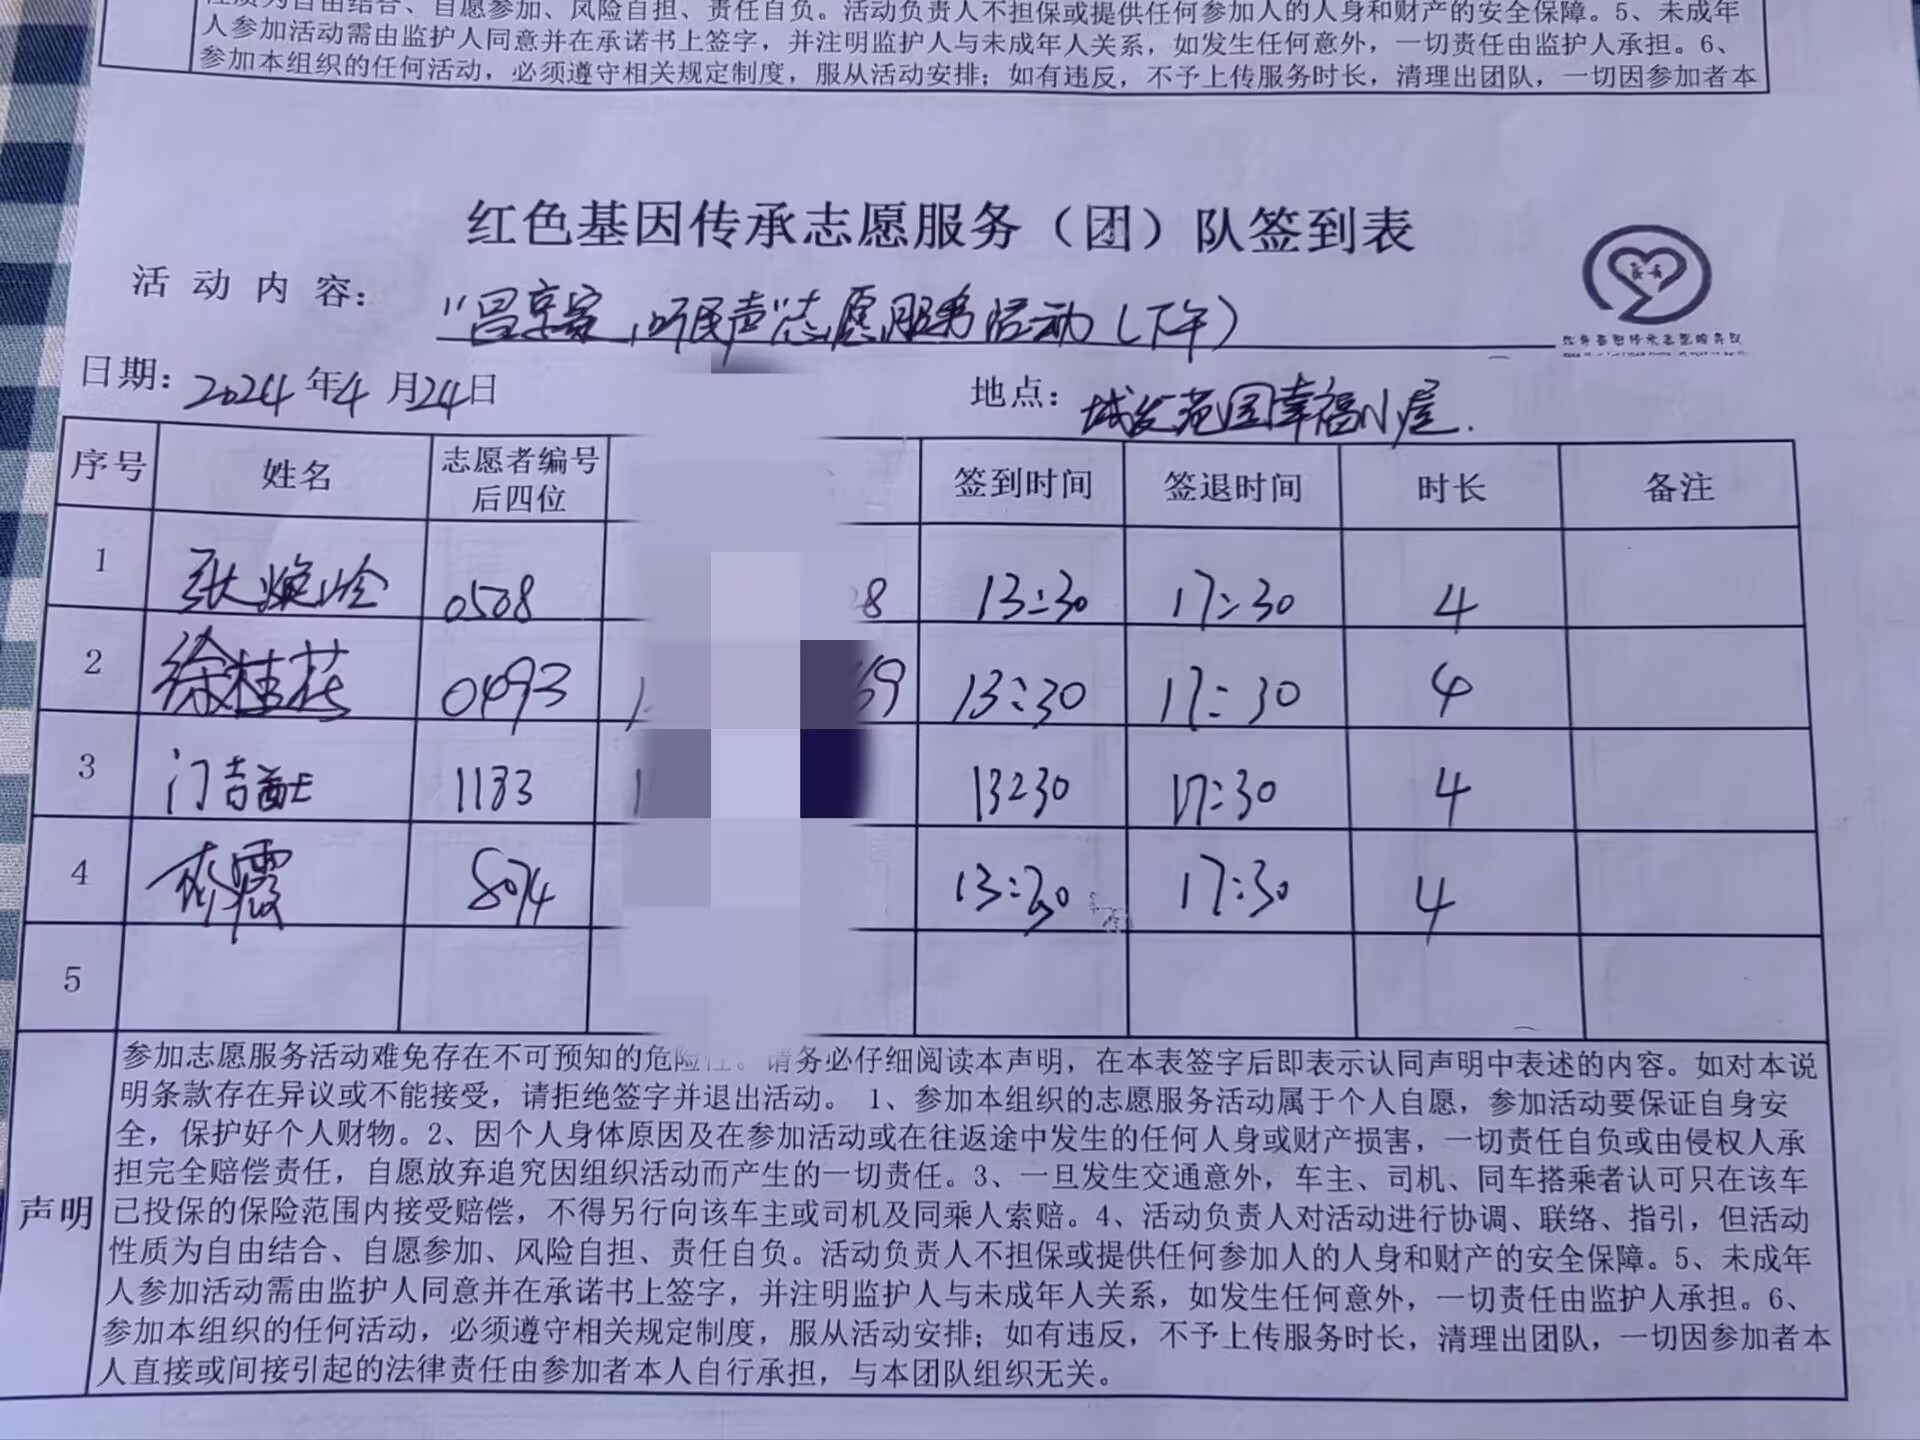 性质为自由结合、自愿参加、风险自担、责任自负。活动负责人不担保或提供任何参加人的人身和财产的安全保障。5、未成年
人参加活动需由监护人同意并在承诺书上签字，并注明监护人与未成年人关系，如发生任何意外，一切责任由监护人承担。6、
参加本组织的任何活动，必须遵守相关规定制度，服从活动安排；如有违反，不予上传服务时长，清理出团队，一切因参加者本
红色基因传承志愿服务（团）队签到表
活动内容：“昌京家，听民声”志愿服务活动（下午）
日期：2024年4月24日 地点：城发范国幸福小屋.
序号 姓名 志愿者编号后四位 签到时间 签退时间 时长 备注
1 张焕玲 0508 8 13:30 17:30 4
2 徐桂花 0493 1 69 13:30 17:30 4
3 门吉 1133 1 13:30 17:30 4
4 霞 8074 13:30 17:30 4
5
声明
参加志愿服务活动难免存在不可预知的危险性。请务必仔细阅读本声明，在本表签字后即表示认同声明中表述的内容。如对本说
明条款存在异议或不能接受，请拒绝签字并退出活动。 1、参加本组织的志愿服务活动属于个人自愿，参加活动要保证自身安
全，保护好个人财物。2、因个人身体原因及在参加活动或在往返途中发生的任何人身或财产损害，一切责任自负或由侵权人承
担完全赔偿责任，自愿放弃追究因组织活动而产生的一切责任。3、一旦发生交通意外，车主、司机、同车搭乘者认可只在该车
已投保的保险范围内接受赔偿，不得另行向该车主或司机及同乘人索赔。4、活动负责人对活动进行协调、联络、指引，但活动
性质为自由结合、自愿参加、风险自担、责任自负。活动负责人不担保或提供任何参加人的人身和财产的安全保障。5、未成年
人参加活动需由监护人同意并在承诺书上签字，并注明监护人与未成年人关系，如发生任何意外，一切责任由监护人承担。6、
参加本组织的任何活动，必须遵守相关规定制度，服从活动安排；如有违反，不予上传服务时长，清理出团队，一切因参加者本
人直接或间接引起的法律责任由参加者本人自行承担，与本团队组织无关。